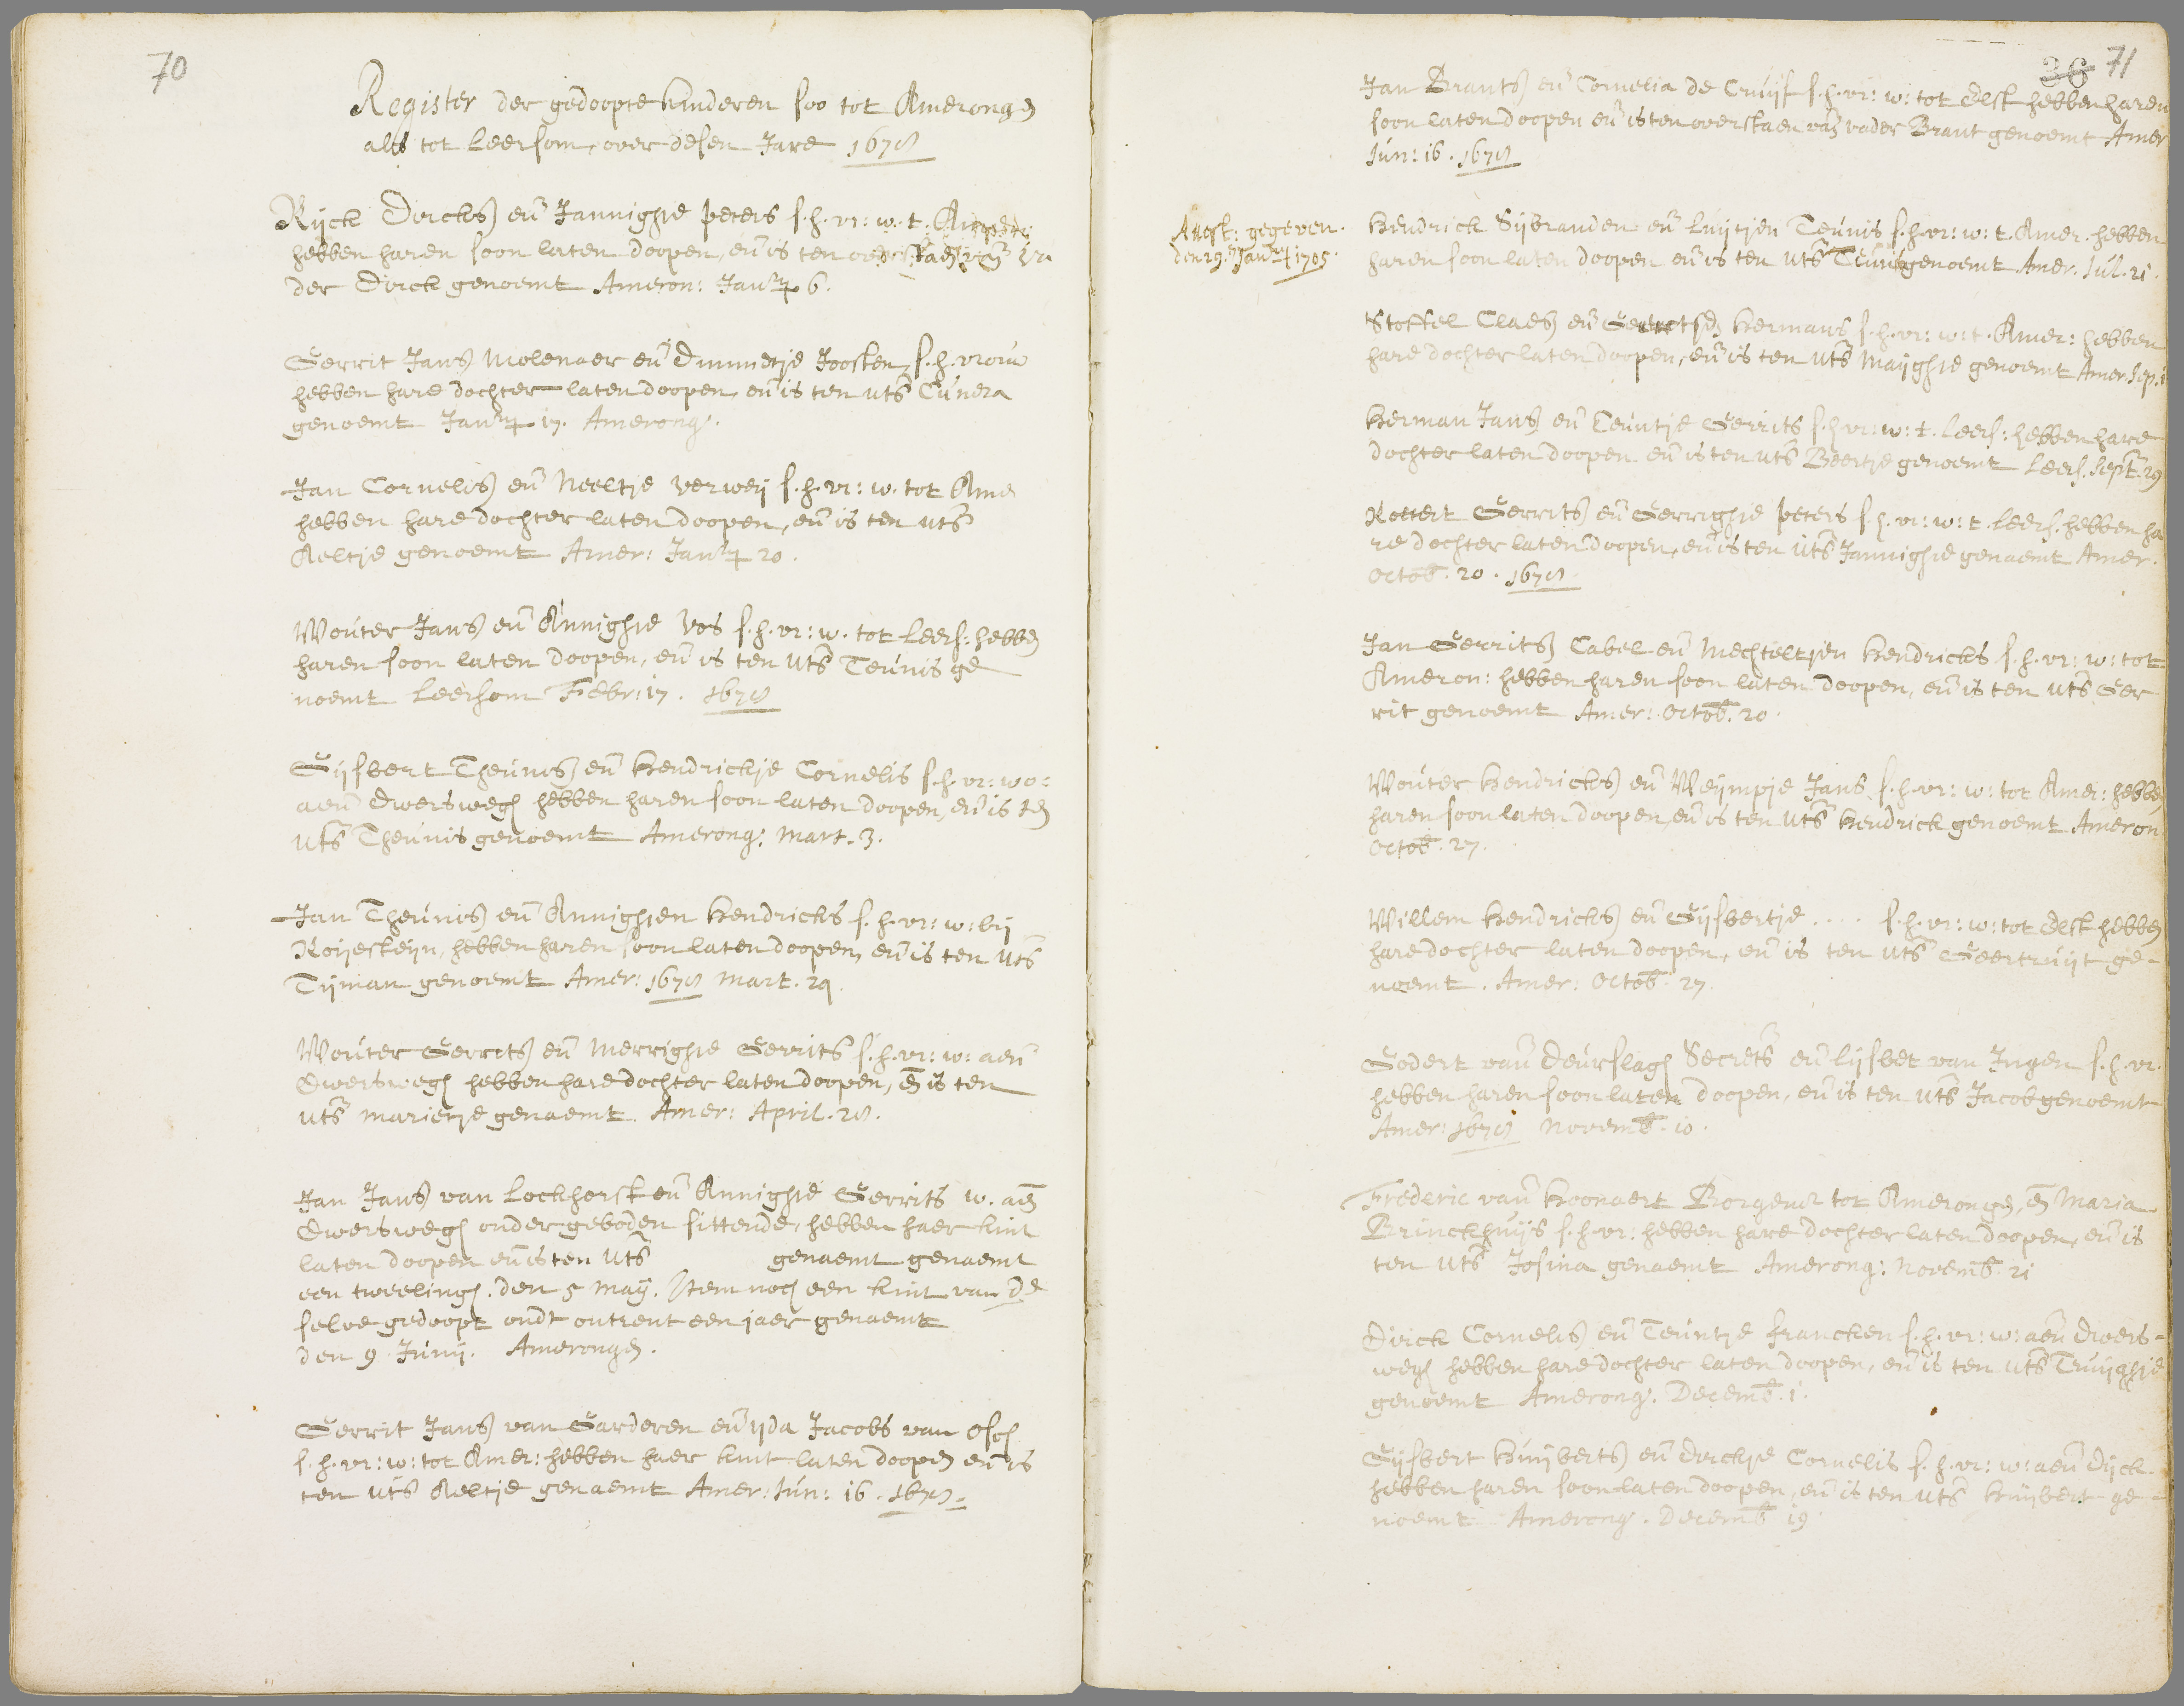 70
Register der gedoopte kinderen soo tot Amerongen
als tot Leersom, over desen Jare 1678
Rijck Dircks en Jannighie peters s.h.vr: w.t.
hebben haren soon laten doopen, en is ten va
der Dirck genoemt Ameron: Jan 6.
Gerrit Jans Molenaer en Joosten, s.h. vrou
hebben hare dochter laten doopen, en is ten uts Cunera
genoemt Jan 17. Amerong.
Jan Cornelis en Neeltje verweij s.h.vr: w. tot Amer
hebben hare dochter laten doopen, en is ten uts
Aeltje genoemt Amer: Jan 20.
Wouter Jans en Annighie Vos s.h.vr: w. tot Leers: hebben
haren soon laten doopen, en is ten uts Teunis ge
noemt Leersom Febr: 17. 1678
Gijsbert Theunis en Hendrickje Cornelis s.h.vr: wo:
aen Dwerswegh hebben haren soon laten doopen, en is ten
uts Theunis genoemt Amerong: Mart. 3.
Jan Theunis en Annighien Hendricks s.h.vr: w: bij
Roijesteijn, hebben haren soon laten doopen, en is ten uts
Tijman genoemt Amer: 1678 Mart. 29.
Wouter Gerrits en Merrighie Gerrits s.h.vr: w: aen
Dwerswegh hebben hare dochter laten doopen, en is ten
uts Marietje genaemt Amer: April. 28.
Jan Jans van Lockhorst en Annighie Gerrits w. aen
Dwerswegh onder geboden sittende, hebben haer kint
laten doopen en is ten uts genaemt genaemt
een tweelingh. den 5 Maij. Item noch een kint van de
selve gedoopt oudt ontrent een jaer genaemt
den 9 Junij. Amerongen.
Gerrit Jans van Garderen en ijda Jacobs van Osch
s.h.vr: w: tot Amer: hebben haer kint laten doopen en is
ten uts Aeltje genaemt Amer: Jun: 16. 1678.
36 71
Jan Brants en Cornelia de Cruijf s.h.vr: w: tot Elst hebben haren
soon laten doopen en is ten overstaen van vader Brant genoemt Amer
Jun: 16. 1678
Attest: gegeven.
den 29. Jan 1705.
Hendrick Sijbranden en Luijtjen Teunis s.h.vr: w: t. Amer. hebben
haren soon laten doopen en is ten uts Teunis genoemt Amer. Jul. 21.
Stoffel Claes en Hermans s.h.vr: w: t. Amer: hebben
hare dochter laten doopen, en is ten uts Maijghie genoemt Amer. Sep. 1
Herman Jans en Teuntje Gerrits s.h.vr: w: t. Leers: hebben hare
dochter laten doopen en is ten uts Beertje genoemt Leers. Sept. 29
Rottert Gerrits en Gerrighie peters s.h.vr: w: t. Leers. hebben ha
re dochter laten doopen, en is ten uts Jannighie genaemt Amer.
Octob. 20. 1678
Jan Gerrits Cabel en Mechteltjen Hendricks s.h.vr: w: tot
Ameron: hebben haren soon laten doopen, en is ten uts Ger
rit genoemt Amer: Octob. 20.
Wouter Hendricks en Weijmpje Jans s.h.vr: w: tot Amer: hebben
haren soon laten doopen, en is ten uts Hendrick genoemt Ameron
Octob. 27.
Willem Hendricks en Gijsbertje .... s.h.vr: w: tot Elst hebben
hare dochter laten doopen, en is ten uts Geertruijt ge-
noemt. Amer: Octob. 27.
Godert van Deurslagh Secrets en Lijsbet van Ingen s.h.vr.
hebben haren soon laten doopen, en is ten uts Jacob genoemt
Amer: 1678 Novemb. 10.
Frederic van Hoonaert Borgemr tot Amerongen, en Maria
Brinckhuijs s.h.vr: hebben hare dochter laten doopen, en is
ten uts Josina genaemt Amerong: Novemb. 21
Dirck Cornelis en Teuntje francken s.h.vr: w: aen Dwers-
wegh hebben hare dochter laten doopen, en is ten uts Truijghje
genoemt Amerong. Decemb. 1.
Gijsbert Huijberts en Dirckje Cornelis s.h.vr: w: aen Dijck
hebben haren soon laten doopen, en is ten uts Huijbert ge-
noemt Amerong. Decemb 19.